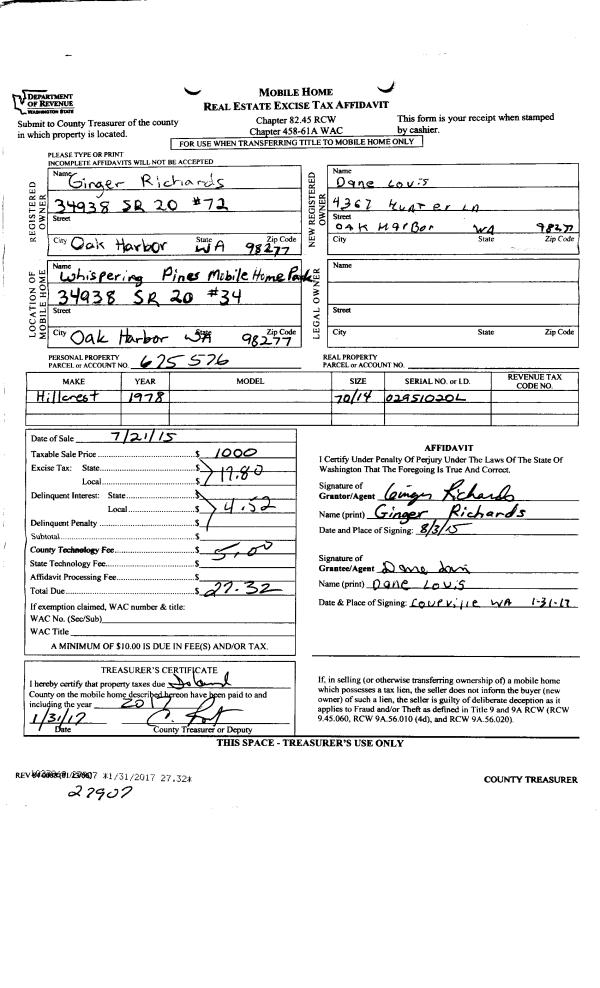 DEPARTMENT
OF REVENUE
WASHINGTON STATE
MOBILE HOME
REAL ESTATE EXCISE TAX AFFIDAVIT
Submit to County Treasurer of the county
in which property is located.
Chapter 82.45 RCW
Chapter 458-61A WAC
This form is your receipt when stamped
by cashier.
FOR USE WHEN TRANSFERRING TITLE TO MOBILE HOME ONLY
PLEASE TYPE OR PRINT
INCOMPLETE AFFIDAVITS WILL NOT BE ACCEPTED
REGISTERED OWNER
Name Ginger Richards
34938 SR 20 #72
Street
City Oak Harbor State WA Zip Code 98277
NEW REGISTERED OWNER
Name Dane Louis
4367 Hunter Ln
Street
Oak Harbor WA 98277
City State Zip Code
LOCATION OF MOBILE HOME
Name Whispering Pines Mobile Home Park
34938 SR 20 #34
Street
City Oak Harbor State WA Zip Code 98277
LEGAL OWNER
Name
Street
City State Zip Code
PERSONAL PROPERTY
PARCEL or ACCOUNT NO. 675576
REAL PROPERTY
PARCEL or ACCOUNT NO.
MAKE YEAR MODEL SIZE SERIAL NO. or I.D. REVENUE TAX CODE NO.
Hillcrest 1978 70/14 02951020L
Date of Sale 7/21/15
Taxable Sale Price $ 1000
Excise Tax: State $ 17.80
Local $
Delinquent Interest: State $ 4.52
Local $
Delinquent Penalty $
Subtotal $
County Technology Fee $ 5.00
State Technology Fee $
Affidavit Processing Fee $
Total Due $ 27.32
If exemption claimed, WAC number & title:
WAC No. (Sec/Sub)
WAC Title
A MINIMUM OF $10.00 IS DUE IN FEE(S) AND/OR TAX.
AFFIDAVIT
I Certify Under Penalty Of Perjury Under The Laws Of The State Of
Washington That The Foregoing Is True And Correct.
Signature of
Grantor/Agent Ginger Richards
Name (print) Ginger Richards
Date and Place of Signing: 8/3/15
Signature of
Grantee/Agent Dane Louis
Name (print) Dane Louis
Date & Place of Signing: Coupville WA 1-31-17
TREASURER'S CERTIFICATE
I hereby certify that property taxes due Island
County on the mobile home described hereon have been paid to and
including the year 2017
1/31/17
Date County Treasurer or Deputy
If, in selling (or otherwise transferring ownership of) a mobile home
which possesses a tax lien, the seller does not inform the buyer (new
owner) of such a lien, the seller is guilty of deliberate deception as it
applies to Fraud and/or Theft as defined in Title 9 and 9A RCW (RCW
9.45.060, RCW 9A.56.010 (4d), and RCW 9A.56.020).
THIS SPACE - TREASURER'S USE ONLY
REV *1/31/2017 27.32*
27907
COUNTY TREASURER